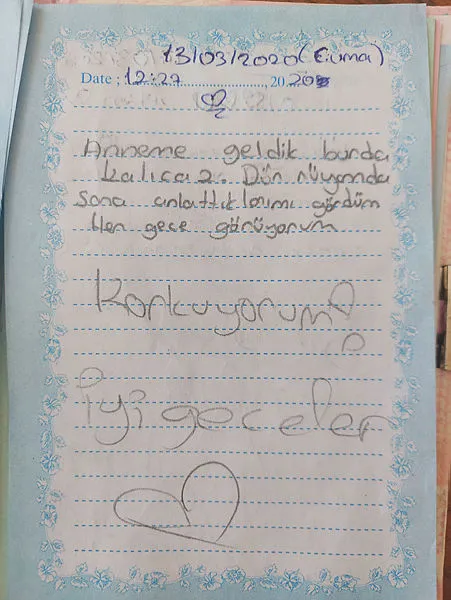 13/03/2020 (Cuma)
Date : 12:27 , 20 20
Anneme geldik burda
kalıcaz. Dün rüyamda
sana anlattıklarımı gördüm
Her gece görüyorum
Korkuyorum
İyi geceler